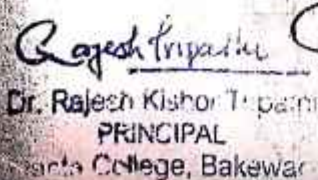 Rajesh Tripathi
Dr. Rajesh Kishor Tripathi
PRINCIPAL
College, Bakewar